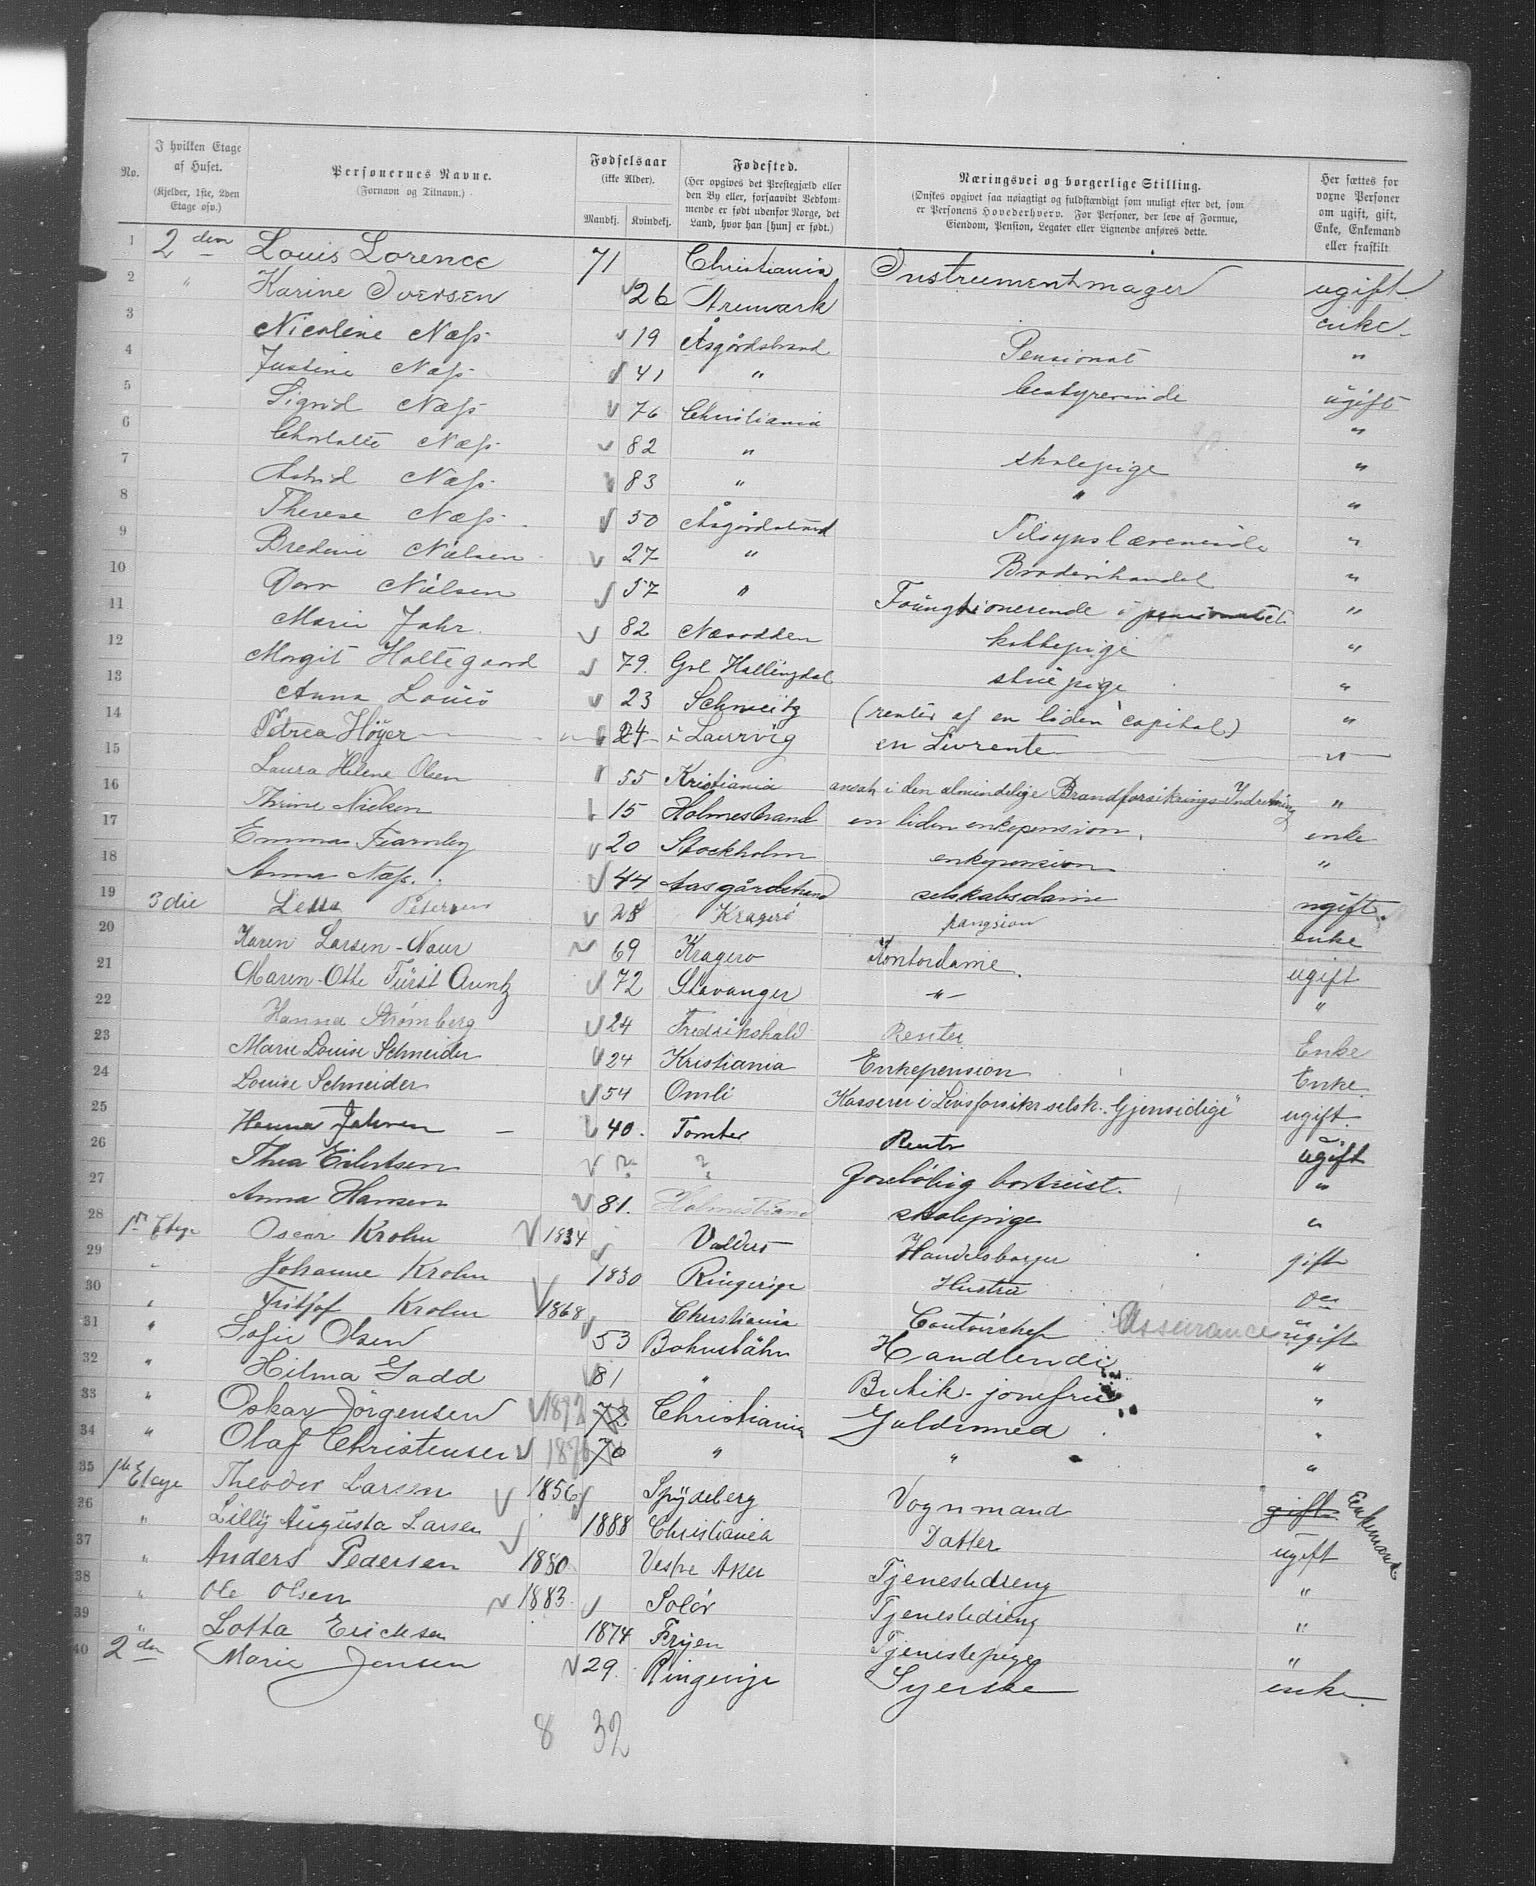 No.
I hvilken Etage af Huset.
(Kjelder, 1ste, 2den Etage osv.)
Personernes Navne.
(Fornavn og Tilnavn.)
Fødselsaar
(ikke Alder).
Mandkj. Kvindekj.
Fødested.
(Her opgives det Prestegjæld eller den By eller, forsaavidt Vedkommende er født udenfor Norge, det Land, hvor han [hun] er født.)
Næringsvei og borgerlige Stilling.
(Ønskes opgivet saa nøiagtigt og fuldstændigt som muligt efter det, som er Personens Hovederhverv. For Personer, der leve af Formue, Eiendom, Pension, Legater eller Lignende anføres dette.
Her sættes for voxne Personer om ugift, gift, Enke, Enkemand eller fraskilt
1 2den Louis Lorence 71 Christiania Instrumentmager ugift
2 " Karine Iversen 26 Aremark enke
3 Nicoline Næss 19 Åsgårdstrand Pensionat "
4 Justine Næss 41 " bestyrerinde ugift
5 Sigrid Næss 76 Christiania "
6 Charlotte Næss 82 " skolepige "
7 Astrid Næss 83 " " "
8 Therese Næss 50 Åsgårdstrand Tilsynslærerinde "
9 Bredine Nielsen 27 " Broderihandel "
10 Dorr Nielsen 57 " Foungtionerende i pensionatet "
11 Marie Jahr 82 Næsodden kokkepige "
12 Margit Holtegaard 79. Gol Hallingdal stuepige "
13 Anna Louis 23 Schweitz (renter af en liden capital) "
14 Petrea Höyer 24 i Laurvig en Livrente "
15 Laura Helene Olsen 55 Kristiania ansat i den almindelige Brandforsikrings-Indretning "
16 Thrine Nielsen 15 Holmestrand en liden enkepension. enke
17 Emma Fearnley 20 Stockholm enkepension "
18 Anna Næss. 44 Aasgårdstrand selskabsdame ugift.
19 3die Petersen 28 Kragerö pangsion enke
20 Karen Larsen-Naur 69 Kragerø Kontordame. ugift
21 Maren-Otte Fürst Auntz 72 Stavanger -"- "
22 Hanna Strømberg 24 Fredrikshald Renter Enke
23 Marie Louise Schneider 24 Kristiania Enkepension Enke
24 Louise Schneider 54 Omli Kasserer i Livsforsikr.selsk. "Gjensidige" ugift
25 Hanna Jahren 40. Tomter Rente ugift
26 Thea Eilertsen ? ? foreløbig bortreist. "
27 Anna Hansen 81. Holmestrand skolepige "
28 1ste Etage Oscar Krohn 1834 Valders Handelsborger gift
29 " Johanne Krohn 1830 Ringerige Hustru do
30 " Fritjof Krohn 1868 Christiania Contorchef Assurance ugift
31 " Sofie Olsen 53 Bohuslähn Handlendi "
32 " Hilma Gadd 81 " Butik-jomfru "
33 " Oskar Jörgensen 1872 72 Christiania Guldsmed "
34 " Olaf Christensen 1870 70 " " "
35 1ste Etage Theodor Larsen 1856 Spydeberg Vognmand gift Enkemand
36 " Lilly Augusta Larsen 1888 Christiania Datter ugift
37 " Anders Pedersen 1880 Vestre Aker Tjenestedreng "
38 " Ole Olsen 1883 Solör Tjenestedreng "
39 " Lotta Ericksen 1874 Fryen Tjenestepige "
40 2den Marie Jensen 29. Ringerige Syerske enke.
8 32